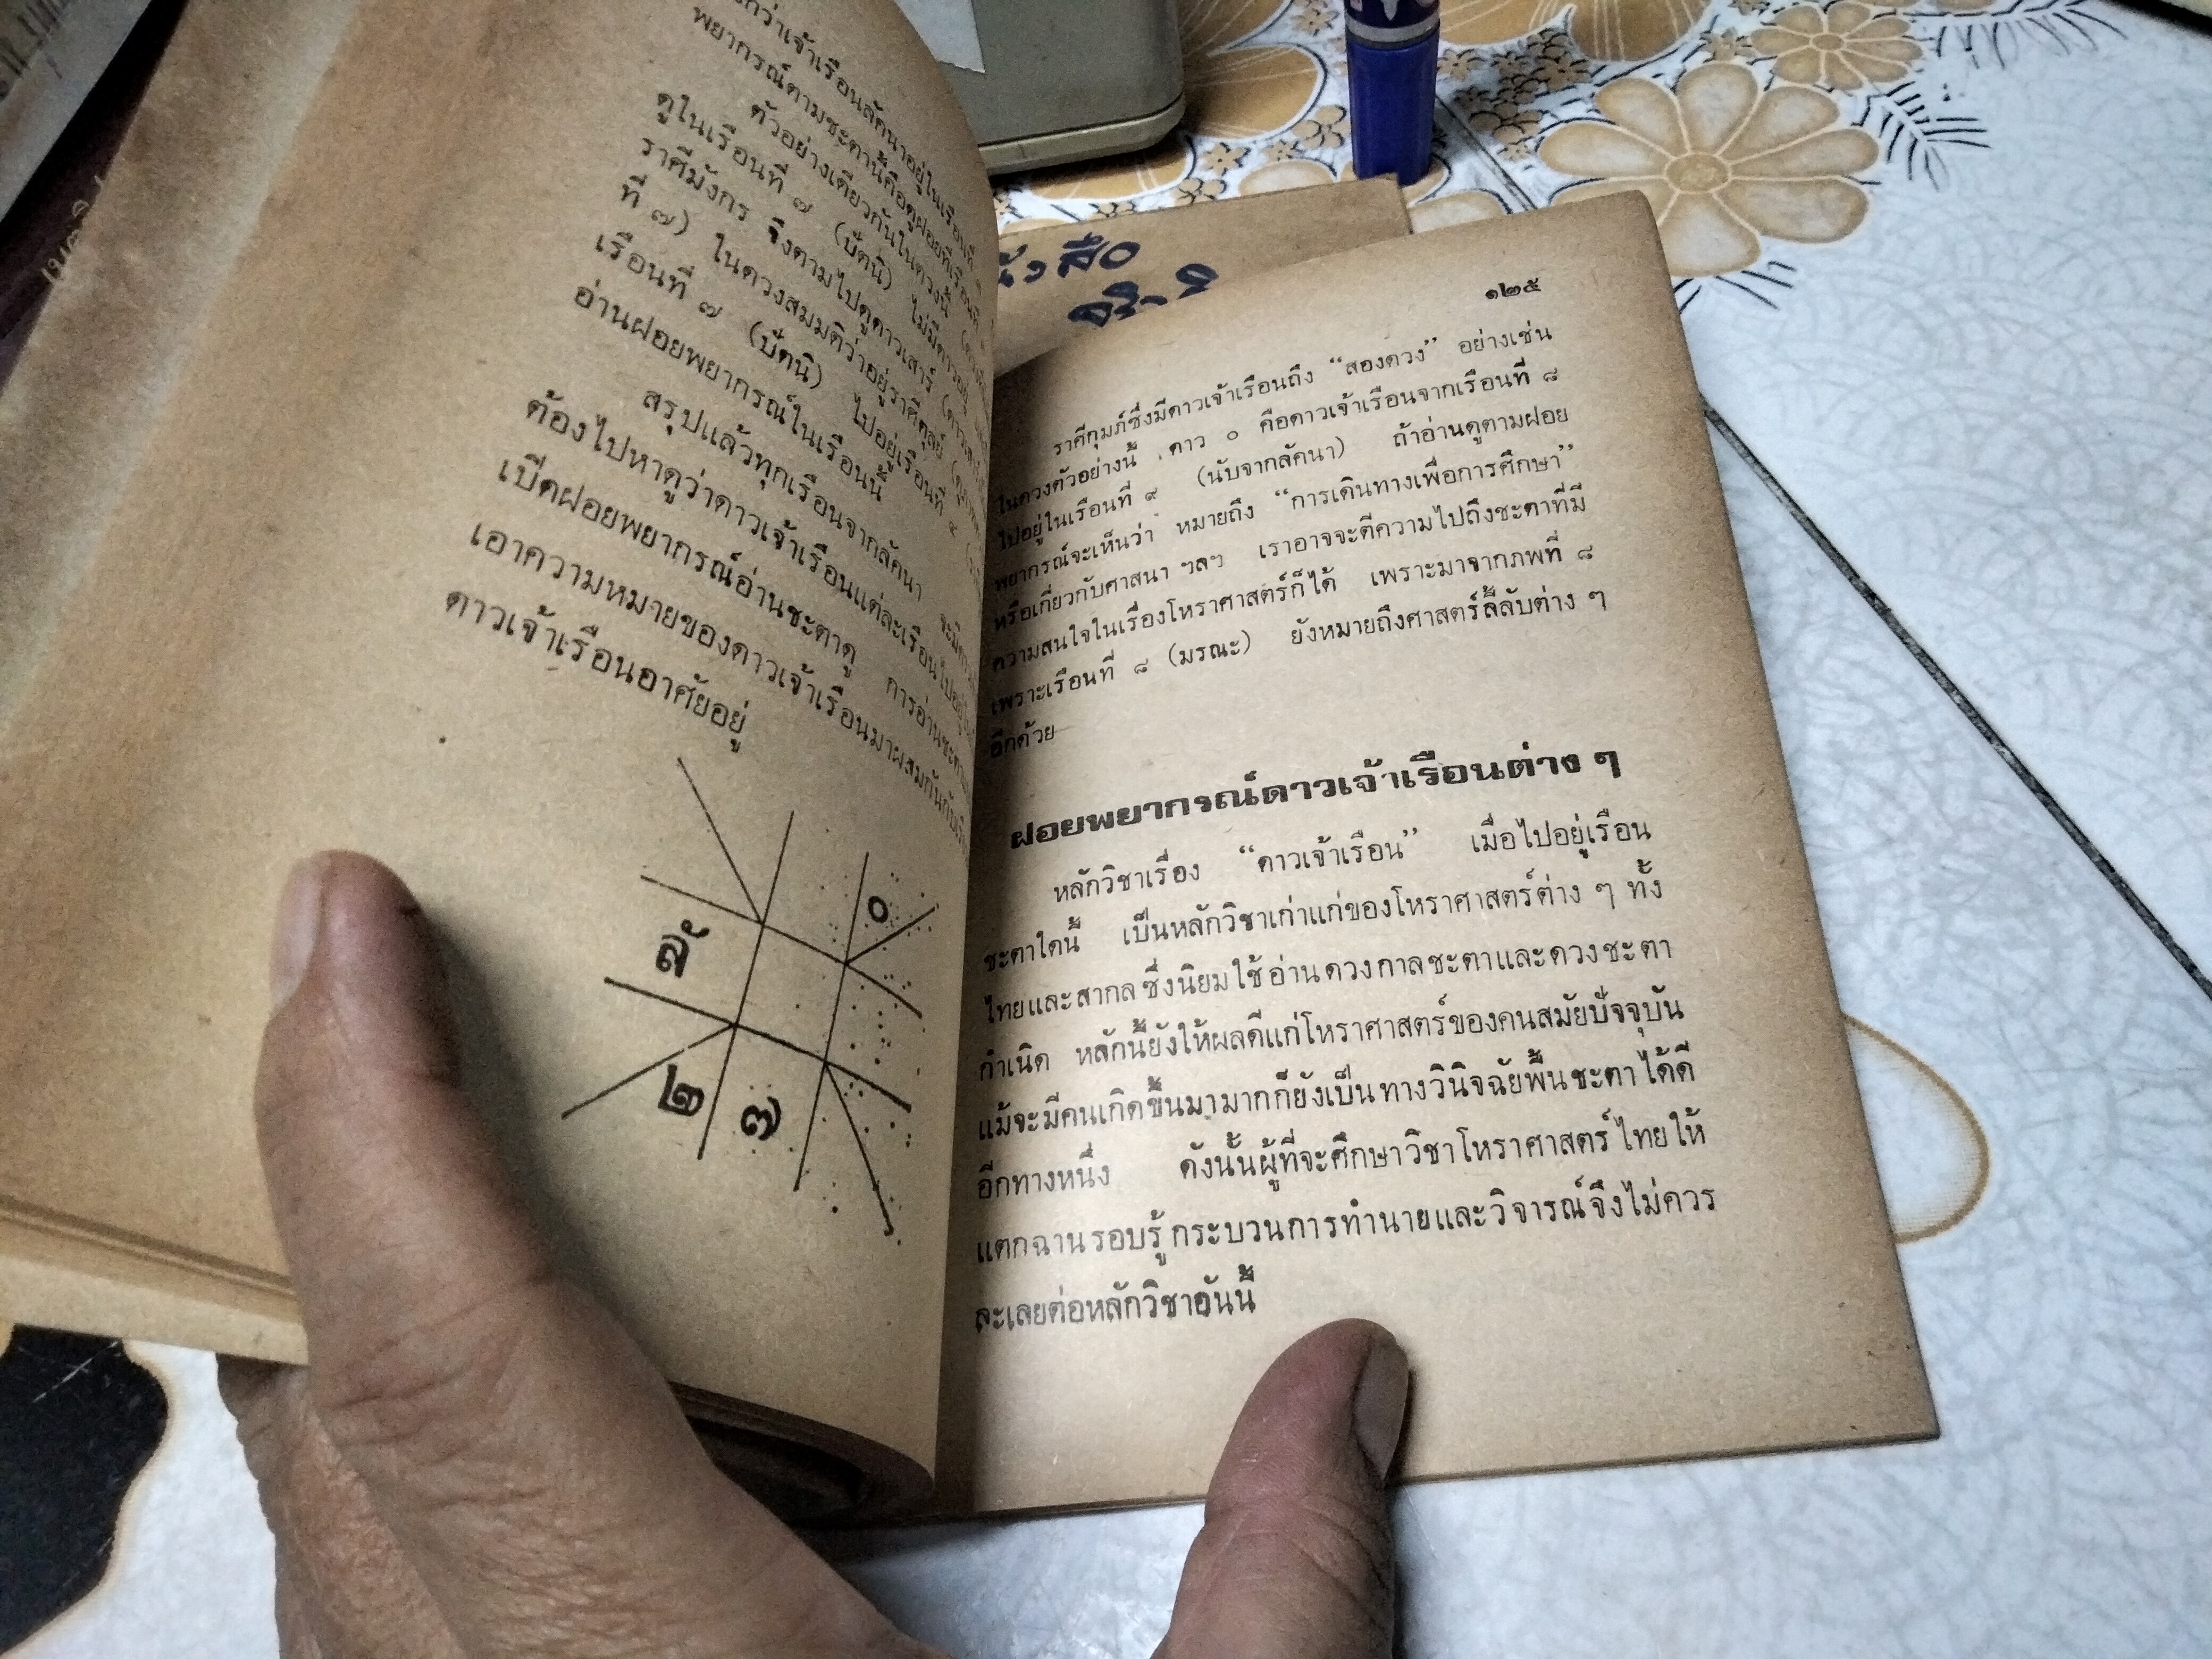 กว่าเจ้าเรือนลัคนาอยู่ในเรือนที่
พยากรณ์ตามชะตานี้คือดูฝอยที่เรือนที่
ตัวอย่างเดียวกันในดวงนี้
ดูในเรือนที่ ๗ (ปัตนิ) ไม่มีดาวอยู่
ราศีมังกร จึงตามไปดูดาวเสาร์
ที่ ๗) ในดวงสมมติว่าอยู่ราศีตุลย์
เรือนที่ ๗ (ปัตนิ) ไปอยู่เรือนที่ ๔
อ่านฝอยพยากรณ์ในเรือนนี้
สรุปแล้วทุกเรือนจากลัคนา
ต้องไปหาดูว่าดาวเจ้าเรือนแต่ละเรือนไปอยู่
เปิดฝอยพยากรณ์อ่านชะตาดู
เอาความหมายของดาวเจ้าเรือนมาผสมกันกับ
ดาวเจ้าเรือนอาศัยอยู่
๐
ลั
๒ ๗
๑๒๕
ราศีกุมภ์ซึ่งมีดาวเจ้าเรือนถึง “สองดวง” อย่างเช่น
ในดวงตัวอย่างนี้ ดาว ๐ คือดาวเจ้าเรือนจากเรือนที่ ๘
ไปอยู่ในเรือนที่ ๙ (นับจากลัคนา) ถ้าอ่านดูตามฝอย
พยากรณ์จะเห็นว่า หมายถึง “การเดินทางเพื่อการศึกษา”
หรือเกี่ยวกับศาสนา ฯลฯ เราอาจจะตีความไปถึงชะตาที่มี
ความสนใจในเรื่องโหราศาสตร์ก็ได้ เพราะมาจากภพที่ ๘
เพราะเรือนที่ ๘ (มรณะ) ยังหมายถึงศาสตร์ลี้ลับต่าง ๆ
อีกด้วย
ฝอยพยากรณ์ดาวเจ้าเรือนต่าง ๆ
หลักวิชาเรื่อง “ดาวเจ้าเรือน” เมื่อไปอยู่เรือน
ชะตาใดนี้ เป็นหลักวิชาเก่าแก่ของโหราศาสตร์ต่าง ๆ ทั้ง
ไทยและสากลซึ่งนิยมใช้อ่านดวงกาลชะตาและดวงชะตา
กำเนิด หลักนี้ยังให้ผลดีแก่โหราศาสตร์ของคนสมัยปัจจุบัน
แม้จะมีคนเกิดขึ้นมามากก็ยังเป็นทางวินิจฉัยพื้นชะตาได้ดี
อีกทางหนึ่ง ดังนั้นผู้ที่จะศึกษาวิชาโหราศาสตร์ไทยให้
แตกฉานรอบรู้กระบวนการทำนายและวิจารณ์จึงไม่ควร
ละเลยต่อหลักวิชาอันนี้